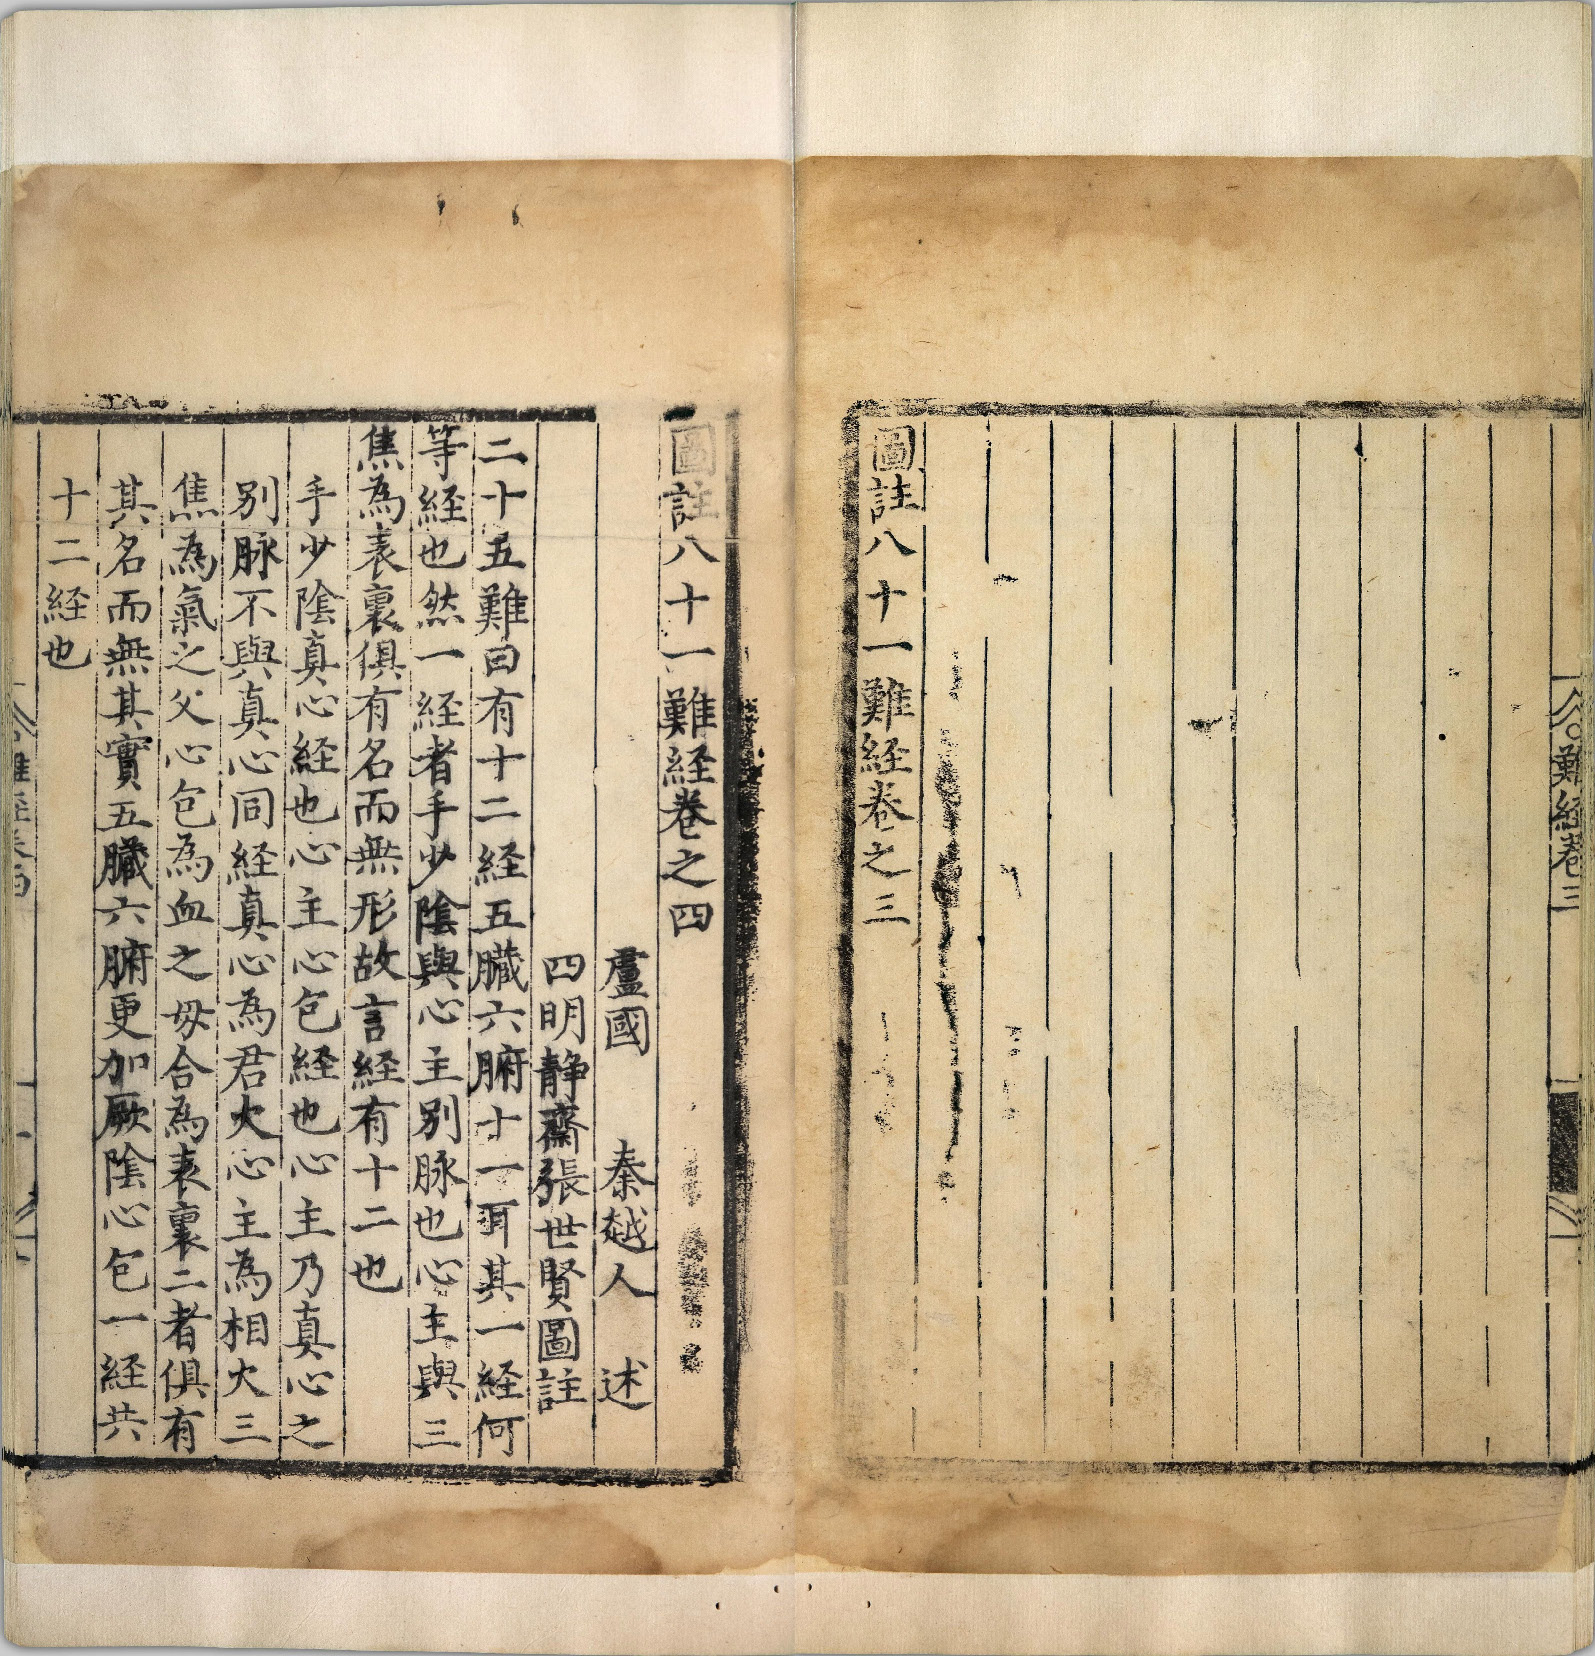 難経巻三
圖註八十一難経卷之三
圖註八十一難経卷之四
盧國　秦越人　述
四明靜齋張世賢圖註
二十五難曰有十二経五臓六腑十一耳其一経何
等経也然一経者手少陰與心主別脉也心主與三
焦為表裏俱有名而無形故言経有十二也
手少陰真心経也心主心包経也心主乃真心之
別脉不與真心同経真心為君火心主為相火三
焦為氣之父心包為血之母合為表裏二者俱有
其名而無其實五臓六腑更加厥陰心包一経共
十二経也